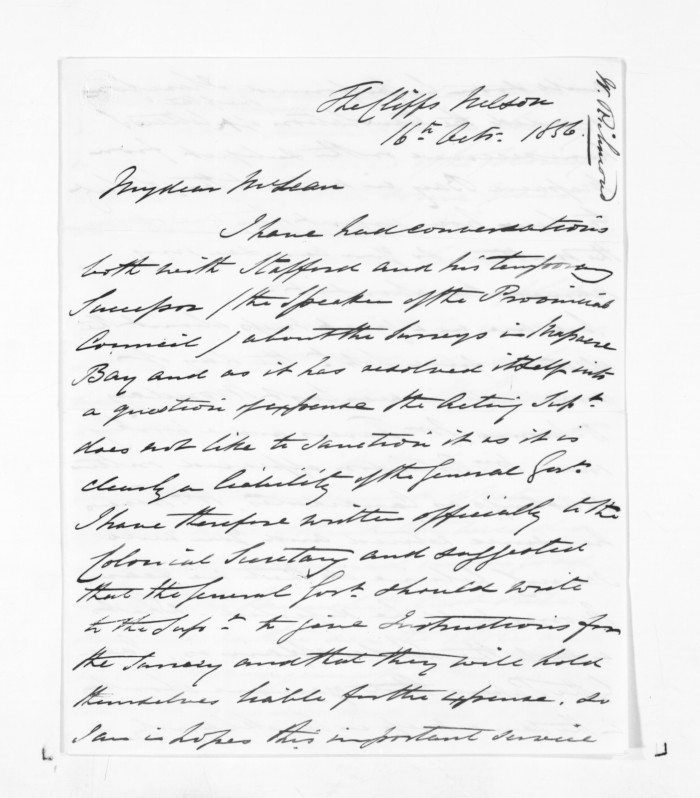 The Cliffs Nelson
16th Octr. 1856.
W. Richmond
My dear McLean
I have had conversations
both with Stafford and his temporary
Successor (the Speaker of the Provincial
Council) about the Surveys in Massacre
Bay and as it has resolved itself into
a question of expense the Acting Supt.
does not like to sanction it as it is
clearly a liability of the General Govt.
I have therefore written officially to the
Colonial Secretary and suggested
that the General Govt. should write
to the Supt. to give Instructions for
the Survey and that they will hold
themselves liable for the expense. so
I am in hopes this important service